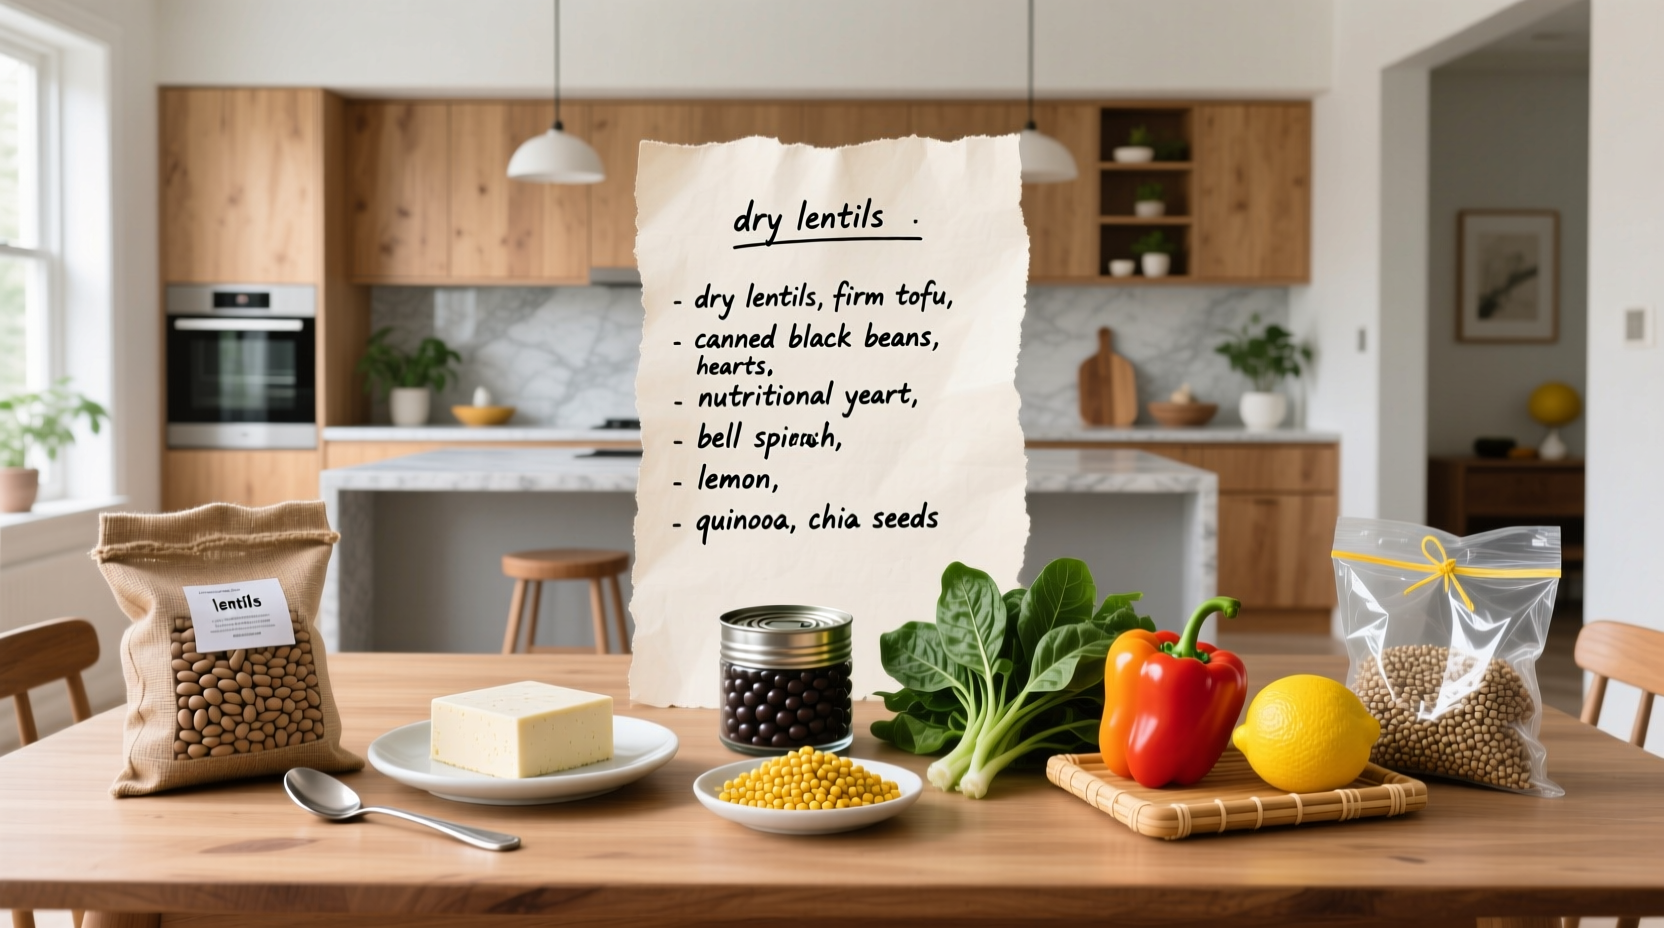 dry lentils .
- dry lentils, firm tofu,
- canned black beans,
hearts,
- nutritional yeart,
- bell spinach,
- lemon,
- quinooa, chia seeds
lentils